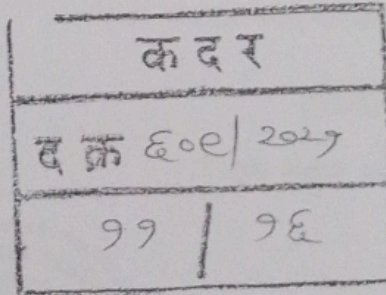 क द र
द क्र ६०९/ २०२१
११ | १६